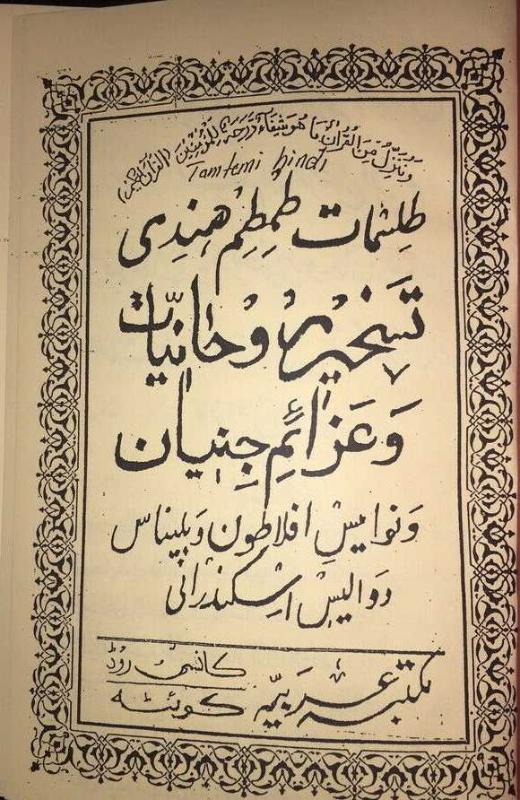 وَنُنَزِّلُ مِنَ الْقُرْآنِ مَا هُوَ شِفَاءٌ وَّرَحْمَةٌ لِّلْمُؤْمِنِیْنَ (القرآن الحکیم)
Tamtemi hindi
طِلِسْمَات طُمْطُمْ هِنْدِی
تَسْخِیْرِ رُوْحَانِیّات
وَ عَزَائِمِ جِنِیَان
وَ نوامیسِ افلاطون وَ بلیناس
و والیس اسکندرانی
مکتبہ عربیہ
کانسی روڈ
کوئٹہ